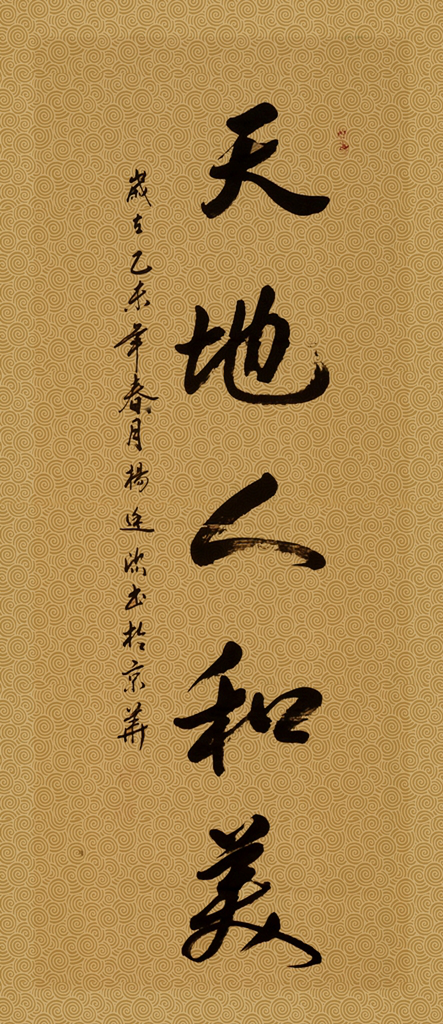 天地人和美
歲在乙未年春月楊述涼书於京華